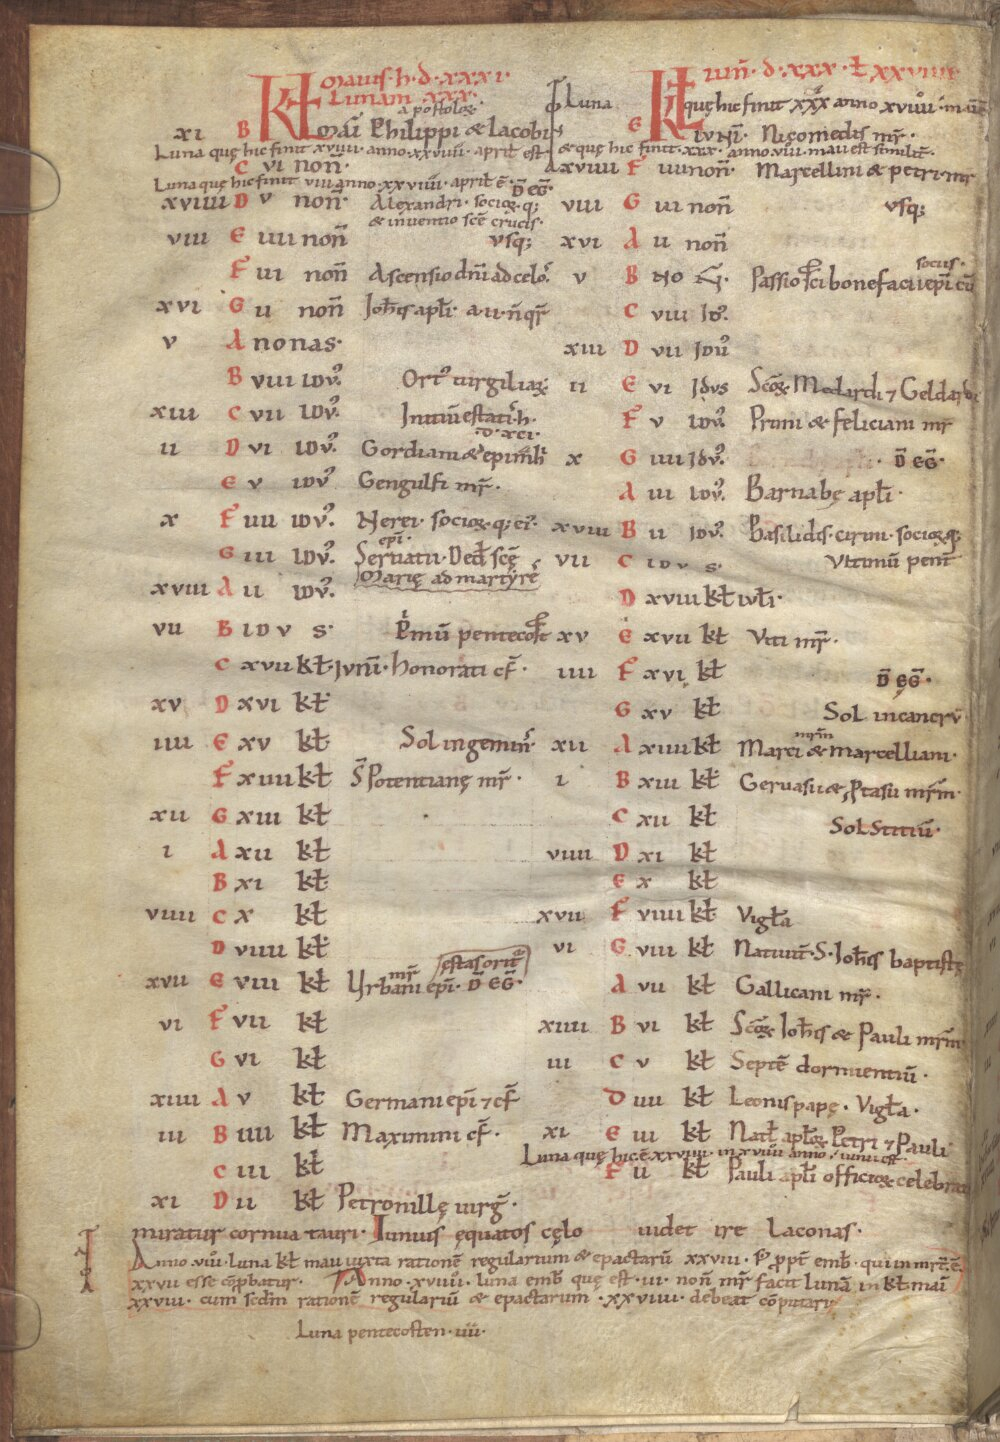 Maius · h · d · xxxi ·
Lunam xxx ·
apostolorꝫ
xi B Kł Maii Philippi & Iacobi
Luna quę hic finit xviiii · anno · xxviiii · april est ·
C vi noñ
Luna quę hic finit viii anno · xxviiii · aprił ē · D̄ EḠ ·
xviiii D v noñ · Alexandri · socioꝝ · qꝫ
& inventio scē crucis ·
viii E iiii noñ vsqꝫ
F iii noñ Ascensio dñi ad celoꝭ
xvi G ii noñ Ioħis apłi · a · ii · ñ qꝛ
v A nonas ·
B viii idvꝰ Ortꝰ virgiliaꝝ
xiii C vii idvꝰ Initiū estatiſ · h ·
· d · xci ·
ii D vi idvꝰ Gordiani & epimħi
E v idvꝰ Gengulfi mr̄ ·
x F iiii idvꝰ Nerei · socioꝝ · qꝫ eiꝰ ·
epi ·
G iii idvꝰ Servatii · Ded scę
Marię ad martyrē
xviii A ii idvꝰ
vii B idvs · P̄mū pentecosł
C xvii kł · ivnii · Honorati cf̄ ·
xv D xvi kł
iiii E xv kł Sol in gemin̄
F xiiii kł S̄ Potentianę mr̄ ·
xii G xiii kł
i A xii kł
B xi kł
viiii C x kł
D viiii kł
ęstas orit̄
mr̄
xvii E viii kł Vrbani epi · D̄ EḠ ·
vi F vii kł
G vi kł
xiiii A v kł Germani epi ⁊ cf̄
iii B iiii kł Maximini cf̄ ·
C iii kł
xi D ii kł Petronillę virg̃ ·
Iuñ · d · xxx · Ł xxviiii
Luna quę hic finit xxx anno xviiii
E Kł Ivnii · Nicomedis mr̄ ·
& quę hic finit · xxx · anno · viii · maii est similit̄ ·
xviiii F iiii noñ · Marcellini & petri · mr̄
viii G iii noñ vsqꝫ
xvi A ii noñ
socius ·
v B Passio sci bonefacii epi cū
C viii idꝰ ·
xiii D vii idvꝰ
ii E vi idvs Scōꝝ Medardi ⁊ Geldardi
F v idvꝰ · Primi & feliciani mr̄
x G iiii idvꝰ · D̄ EḠ ·
A iii idvꝰ · Barnabę apłi ·
xviii B ii idvꝰ · Basilidis · cirini · socioꝝ qꝫ
vii C idvs · Vltimū pent̄
D xviii kł ivłi ·
xv E xvii kł Viti mr̄ ·
iiii F xvi kł D̄ EḠ ·
G xv kł Sol in cancrū
mr̄m
xii A xiiii kł Marci & marcelliani ·
i B xiii kł Gervasii & ꝓtasii mr̄m ·
C xii kł Solstitiū ·
viiii D xi kł
E x kł
xvii F viiii kł Vigła
vi G viii kł Nativit · S · Ioħis baptistę
A vii kł Gallicani mr̄ ·
xiiii B vi kł Scōꝝ Ioħis & Pauli mr̄m
iii C v kł Septē dormientiū ·
D iiii kł Leonis papę · Vigła ·
xi E iii kł Natł apłoꝝ Petri ⁊ Pauli
Luna quę hic ē xxviiii · in xviiii anno · iunii est ·
F ii kł Pauli apłi officioꝝ celebrat
miratur cornua tauri · Iunius ęquatos cęlo videt ire Laconas ·
Anno · viii · luna kł maii iuxta rationē regularium & epactarū xxviii · ꝑ ꝓpt̄ emb̄ · qui in mr̄t · ē ·
xxvii esse cōprobatur · Anno · xviiii · luna emb̄ quę est · iii · noñ mr̄ facit lunā in kł maii
xxviii · cum scdm rationē regulariū & epactarum · xxviiii · debeat cōputari
Luna pentecosten · iiii ·